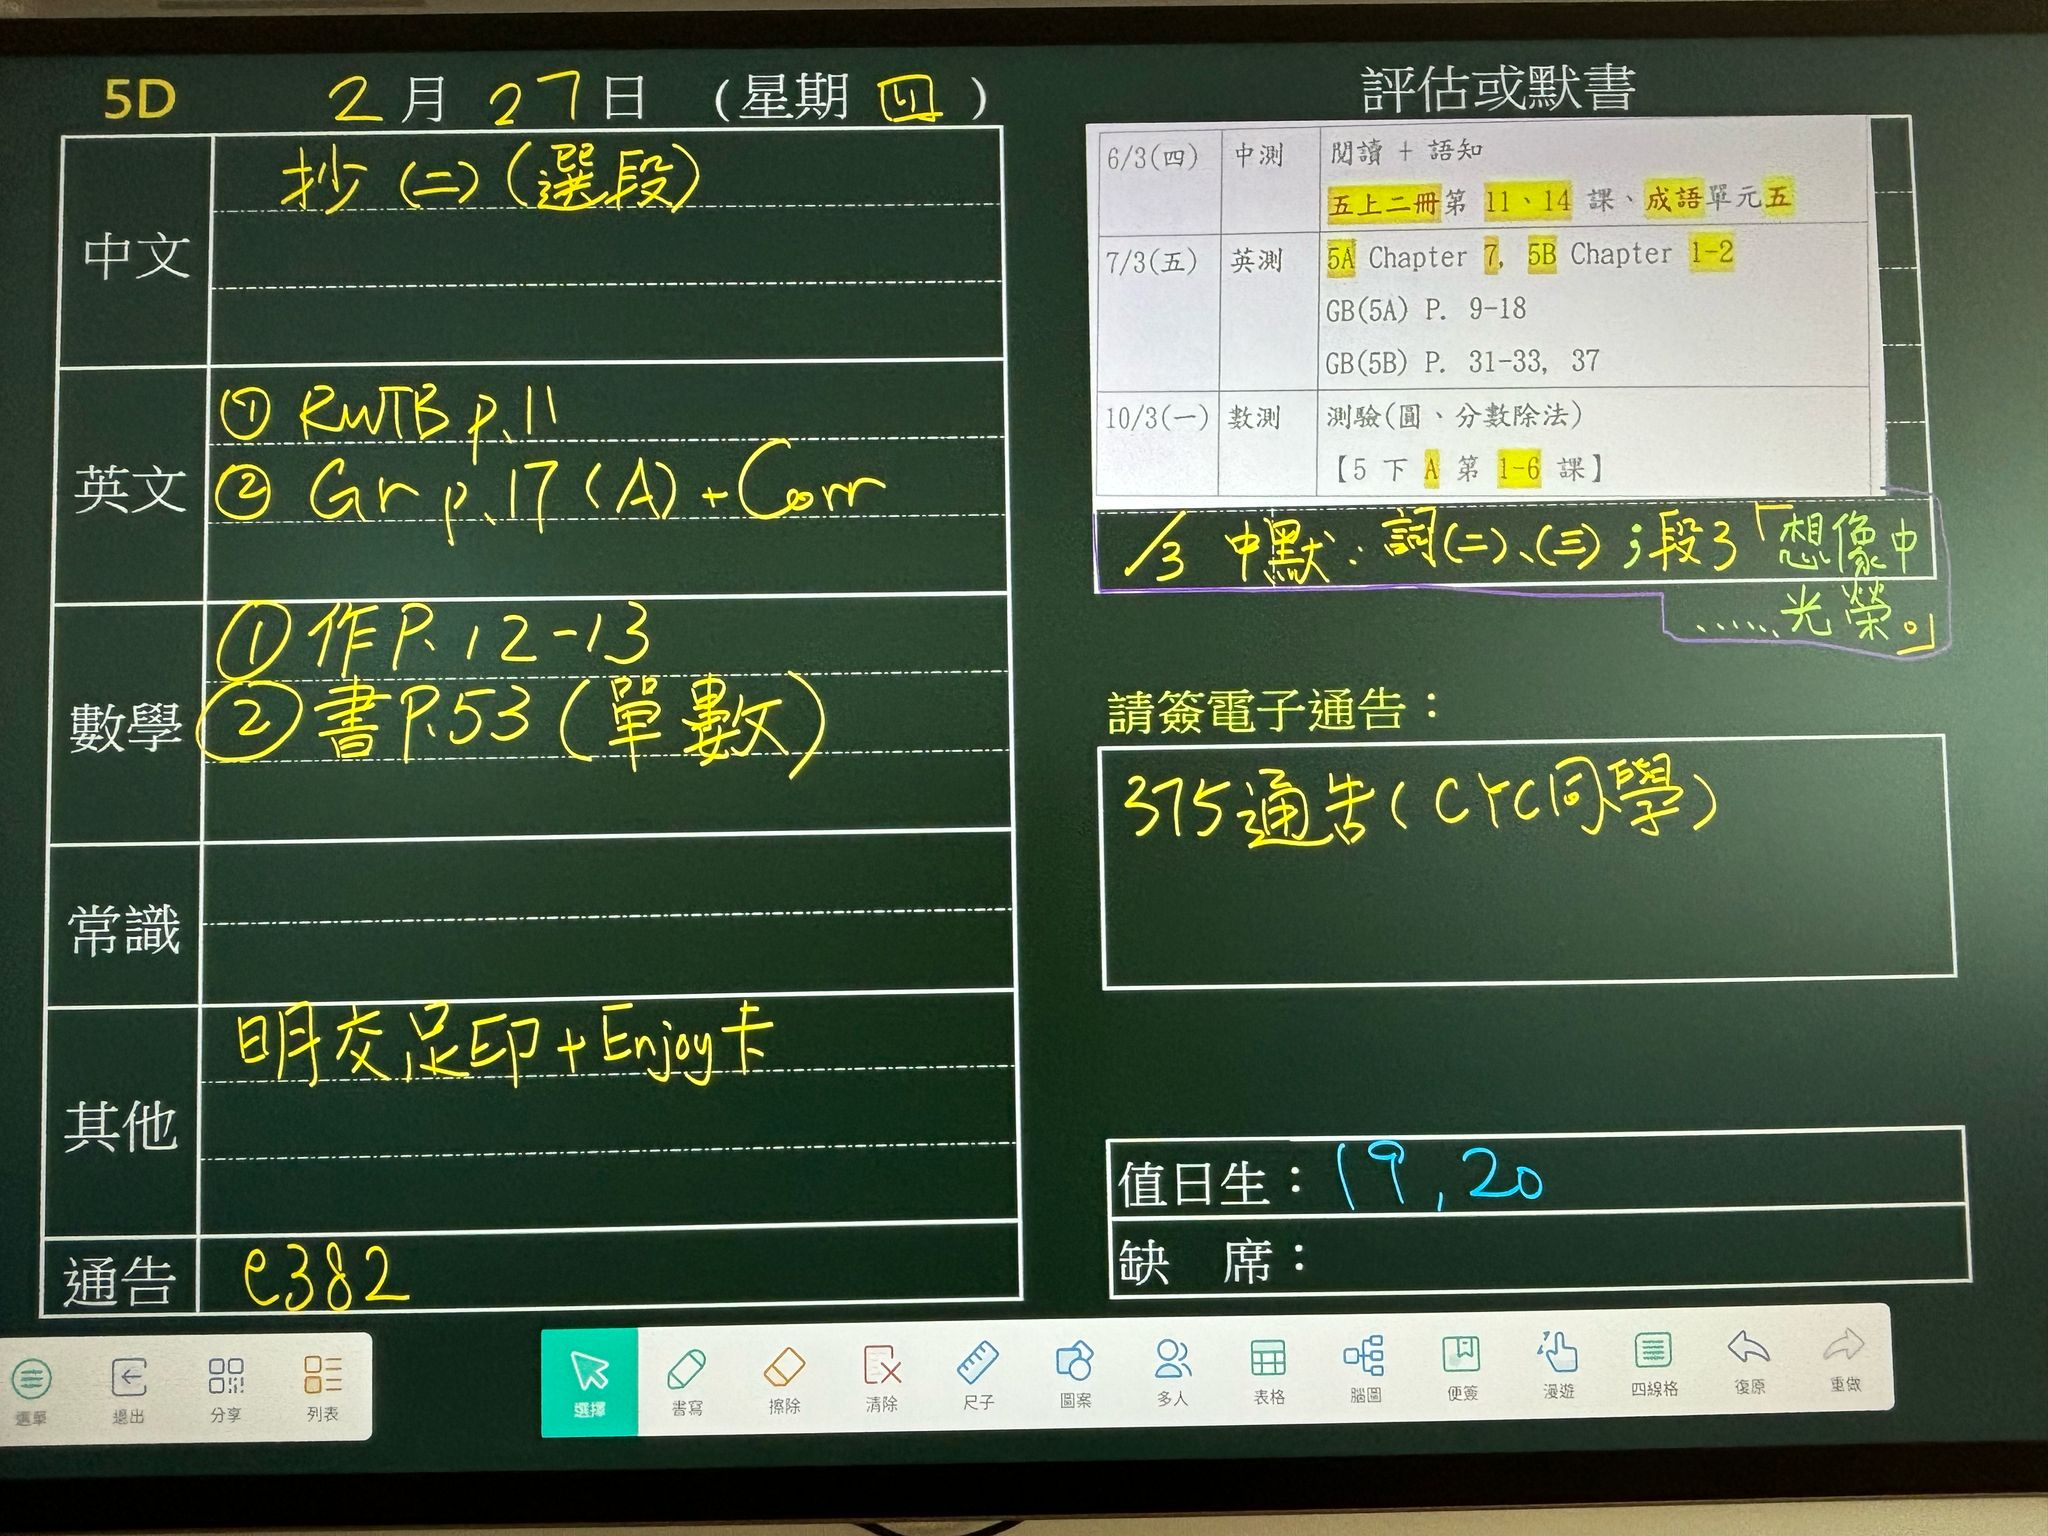 5D 2月27日 (星期四)
中文
抄(二)(選段)
英文
① RWTB p.11
② Gr p.17 (A) + Corr
數學
① 作P.12-13
② 書P.53 (單數)
常識
其他
明交足印+Enjoy卡
通告
e382
評估或默書
6/3(四) 中測 閱讀 + 語知
五上二冊第 11、14 課、成語單元五
7/3(五) 英測 5A Chapter 7, 5B Chapter 1-2
GB(5A) P. 9-18
GB(5B) P. 31-33, 37
10/3(一) 數測 測驗(圓、分數除法)
【5 下 A 第 1-6 課】
/3 中默:詞(二)、(三);段3「想像中
......光榮。」
請簽電子通告:
375通告(CYC同學)
值日生:19, 20
缺 席:
選單 退出 分享 列表
選擇 書寫 擦除 清除 尺子 圖案 多人 表格 腦圖 便簽 漫遊 四線格 復原 重做